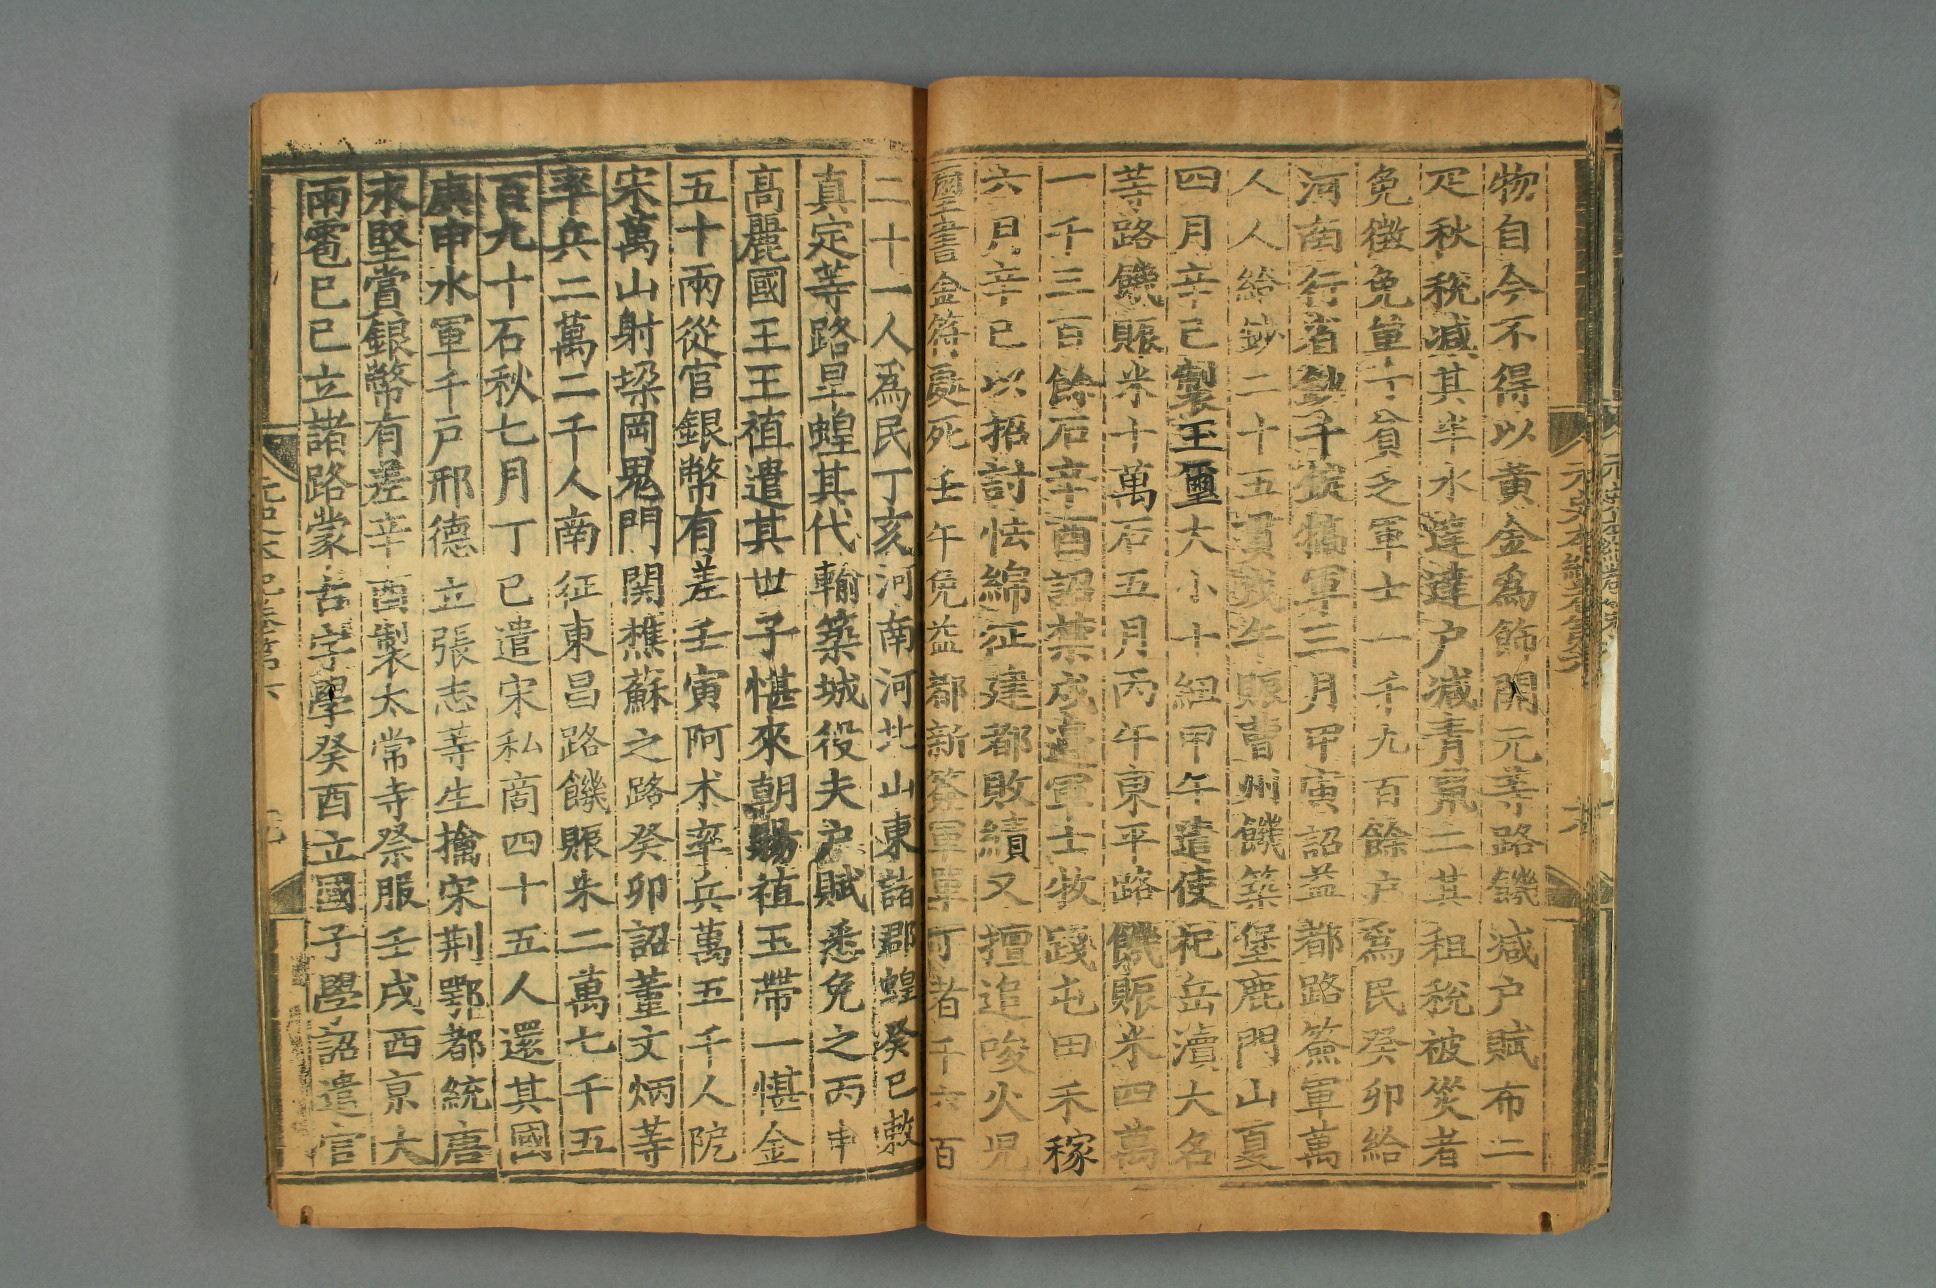 物自今不得以黃金爲飾開元等路饑减户賦布二
疋秋稅减其半水達達户减青鼠二其租稅被灾者
免徵免單丁貧乏軍士一千九百餘户爲民癸卯給
河南行省鈔千錠犒軍三月甲寅詔益都路簽軍萬
人人給鈔二十五貫戊午賑曹州饑築堡鹿門山夏
四月辛巳製玉璽大小十紐甲午遣使祀岳瀆大名
等路饑賑米十萬石五月丙午東平路饑賑米四萬
一千三百餘石辛酉詔禁戍邊軍士牧踐屯田禾稼
六月辛巳以招討怯綿征建都敗績又擅追唆火児
璽書金符處死壬午免益都新簽軍單丁者千六百
二十一人爲民丁亥河南河北山東諸郡蝗癸巳敕
真定等路旱蝗其代輸築城役夫户賦悉免之丙申
高麗國王王禃遣其世子愖來朝賜禃玉帶一愖金
五十兩從官銀幣有差壬寅阿术率兵萬五千人阨
宋萬山射垜岡鬼門關樵蘇之路癸卯詔董文炳等
率兵二萬二千人南征東昌路饑賑米二萬七千五
百九十石秋七月丁巳遣宋私商四十五人還其國
庚申水軍千户邢德立張志等生擒宋荆鄂都統唐
永堅賞銀幣有差辛酉製太常寺祭服壬戌西京大
雨雹己巳立諸路蒙古字學癸酉立國子學詔遣官